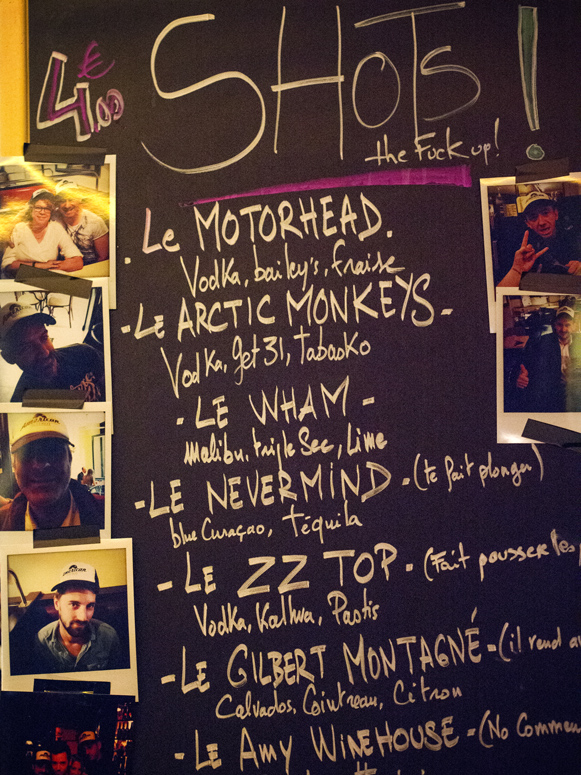 4.00 €
SHOTS!
the Fuck up!
. Le MOTORHEAD.
Vodka, bailey's, fraise
- Le ARCTIC MONKEYS -
Vodka, get 31, tabasko
. LE WHAM -
Malibu, triple Sec, Lime
- LE NEVERMIND - (te fait plonger)
blue Curaçao, téquila
- LE ZZ TOP - (Fait pousser les
Vodka, Kalhua, Pastis
- LE GILBERT MONTAGNÉ - (il rend
Calvados, Cointreau, Citron
- LE AMY WINEHOUSE - (No Commen